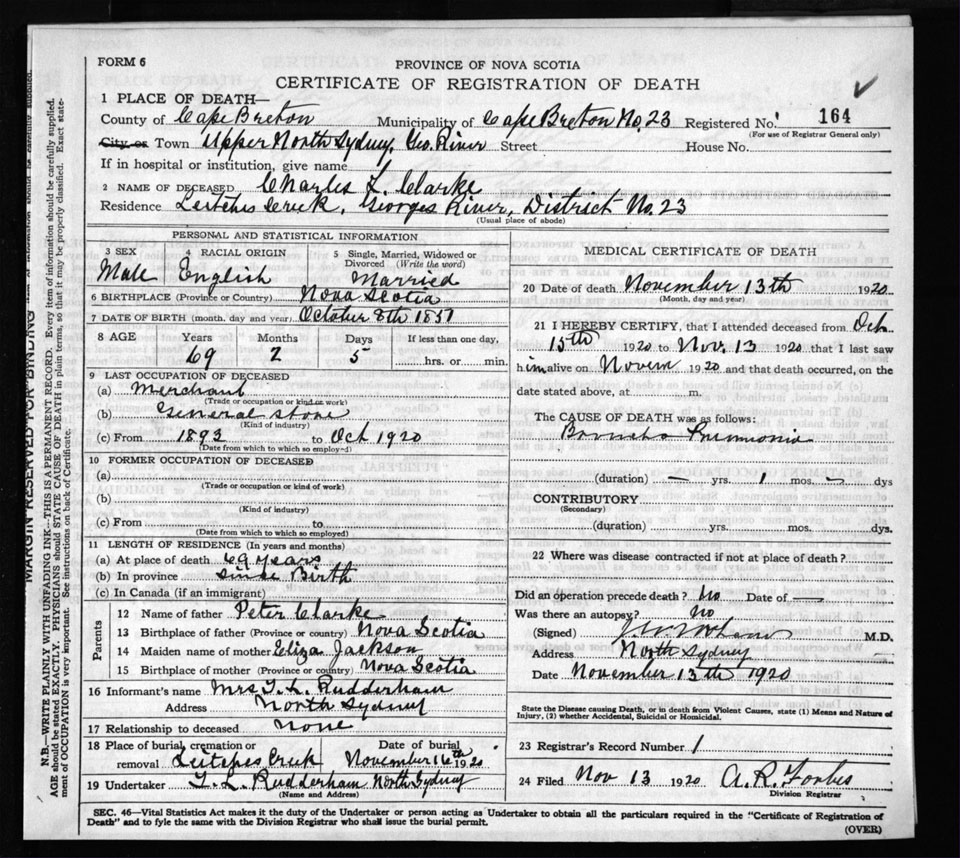 FORM 6
PROVINCE OF NOVA SCOTIA
CERTIFICATE OF REGISTRATION OF DEATH
1 PLACE OF DEATH—
County of Cape Breton Municipality of Cape Breton No. 23 Registered No. 164
(For use of Registrar General only)
City or Town Upper North Sydney, Geo. River Street House No.
If in hospital or institution, give name
2 NAME OF DECEASED Charles L. Clarke
Residence Leitches Creek, Georges River, District No. 23
(Usual place of abode)
PERSONAL AND STATISTICAL INFORMATION
3 SEX 4 RACIAL ORIGIN 5 Single, Married, Widowed or Divorced (Write the word)
Male English Married
6 BIRTHPLACE (Province or Country) Nova Scotia
7 DATE OF BIRTH (month, day and year) October 8th 1851
8 AGE Years Months Days If less than one day,
69 2 5 hrs. or min.
9 LAST OCCUPATION OF DECEASED
(a) Merchant
(Trade or occupation or kind of work)
(b) General store
(Kind of industry)
(c) From 1893 to Oct 1920
(Date from which to which so employed)
10 FORMER OCCUPATION OF DECEASED
(a)
(Trade or occupation or kind of work)
(b)
(Kind of industry)
(c) From to
(Date from which to which so employed)
11 LENGTH OF RESIDENCE (In years and months)
(a) At place of death 69 years
(b) In province since Birth
(c) In Canada (if an immigrant)
Parents
12 Name of father Peter Clarke
13 Birthplace of father (Province or country) Nova Scotia
14 Maiden name of mother Eliza Jackson
15 Birthplace of mother (Province or country) Nova Scotia
16 Informant's name Mrs T. L. Rudderham
Address North Sydney
17 Relationship to deceased none
18 Place of burial, cremation or removal Date of burial
Creek November 16th 1920
19 Undertaker T. L. Rudderham North Sydney
(Name and Address)
MEDICAL CERTIFICATE OF DEATH
20 Date of death November 13th 1920
(Month, day and year)
21 I HEREBY CERTIFY, that I attended deceased from Oct.
15th 1920 to Nov. 13 1920 that I last saw
him alive on Novem 1920 and that death occurred, on the
date stated above, at m.
The CAUSE OF DEATH was as follows:
Pneumonia
(duration) — yrs. 1 mos. — dys
CONTRIBUTORY
(Secondary)
(duration) yrs. mos. dys.
22 Where was disease contracted if not at place of death?
Did an operation precede death? No Date of —
Was there an autopsy? no
(Signed) M.D.
Address North Sydney
Date November 13th 1920
State the Disease causing Death, or in death from Violent Causes, state (1) Means and Nature of
Injury, (2) whether Accidental, Suicidal or Homicidal.
23 Registrar's Record Number 1
24 Filed Nov 13 1920 A. R. Forbes
Division Registrar
SEC. 46—Vital Statistics Act makes it the duty of the Undertaker or person acting as Undertaker to obtain all the particulars required in the "Certificate of Registration of
Death" and to fyle the same with the Division Registrar who shall issue the burial permit.
(OVER)
MARGIN RESERVED FOR BINDING
N.B.—WRITE PLAINLY, WITH UNFADING INK—THIS IS A PERMANENT RECORD. Every item of information should be carefully supplied.
AGE should be stated EXACTLY. PHYSICIANS should STATE CAUSE OF DEATH in plain terms, so that it may be properly classified. Exact state-
ment of OCCUPATION is very important. See instructions on back of Certificate.